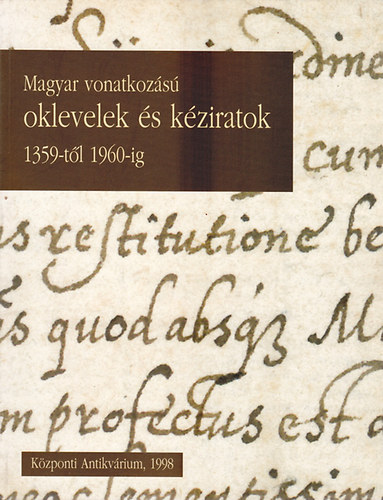 rdine
Magyar vonatkozású
oklevelek és kéziratok
1359-től 1960-ig
cum
us restitutione be
is quod absq3 M
m profectus est a
Központi Antikvárium, 1998
clementissim